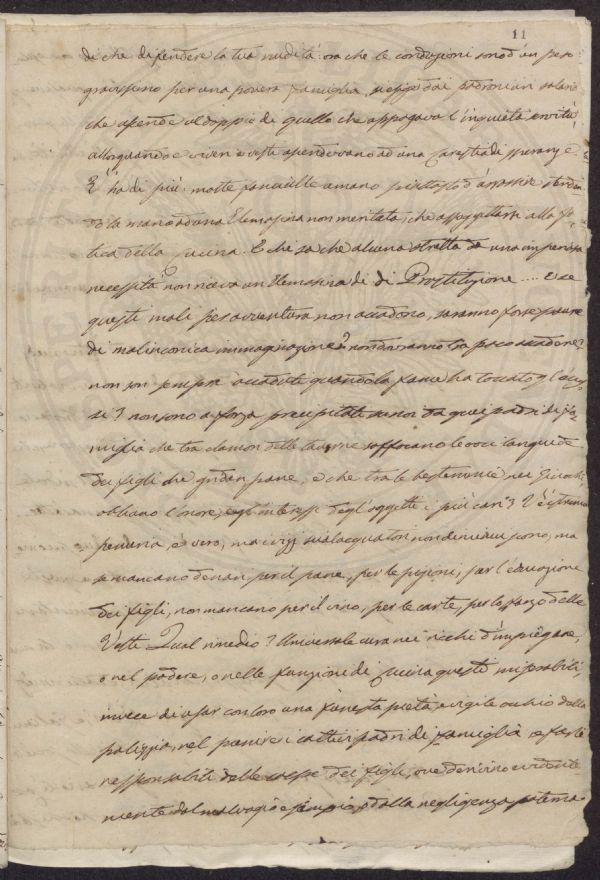 11
di che difendere la tua nudità: ora che le condizioni sono d'un peso
gravissimo per una povera famiglia, si esigge dai padroni un salario
che ascende al doppio di quello che appagava l'inquieta servitù,
allorquando e viveri e veste ascendevano ad una carestia di
E v'ha di più: molte fanciulle amano piuttosto d'arrossire stenden
do la mano ad una Elemosina non meritata, che assoggettarsi alla fa
tica della cucina. E chi sa che alcuna stretta da una imperiosa
necessità non riceva un'Elemosina di di Prostituzione .... e se
questi mali per avventura non accadono, saranno forse paure
di malinconica immaginazione? non potranno tra poco accadere?
non son sempre accaduti quando la fame ha toccato gl'ecces
si? non sono a forza precipitate da quei padri di fa
miglia che tra clamori delle taverne soffocano le voci languide
dei figli che gridan pane, e che tra le bestemmie nei Giochi
obliano l'onore, e gl'interessi degl'oggetti i più cari? V'è
penuria, è vero, ma i vizj scialacquatori non diminuiscono, ma
se mancano denari per il pane, per le pigioni, per l'educazione
dei figli, non mancano per il vino, per le carte, per lo sfarzo delle
Vesti. Qual rimedio? Universale cura nei ricchi d'impiegare,
o nel podere, o nelle funzioni di cucina questi miserabili,
invece di usar con loro una funesta pietà, e vigile occhio della
polizzia, nel punire i cattivi padri di famiglia e farli
responsabili delle colpe dei figli, ove derivino evidente
mente dal malvagio esempio, o dalla negligenza paterna